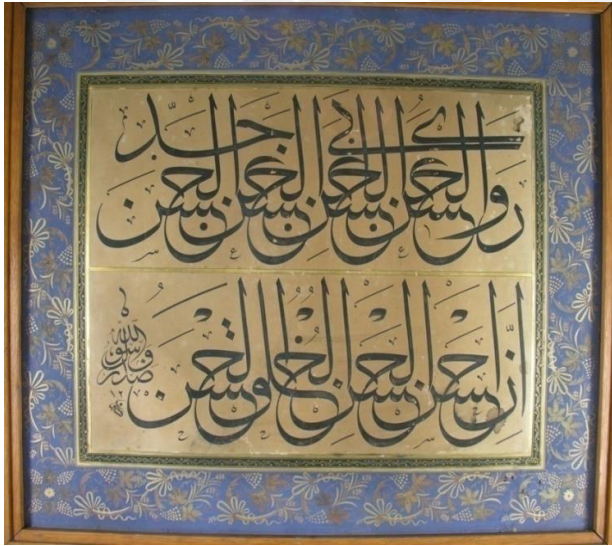 روى الحسن عن الحسن عن ابي الحسن عن جد الحسن
اِنَّ احسن الحسن الخلق الحسن
صدق رسول الله